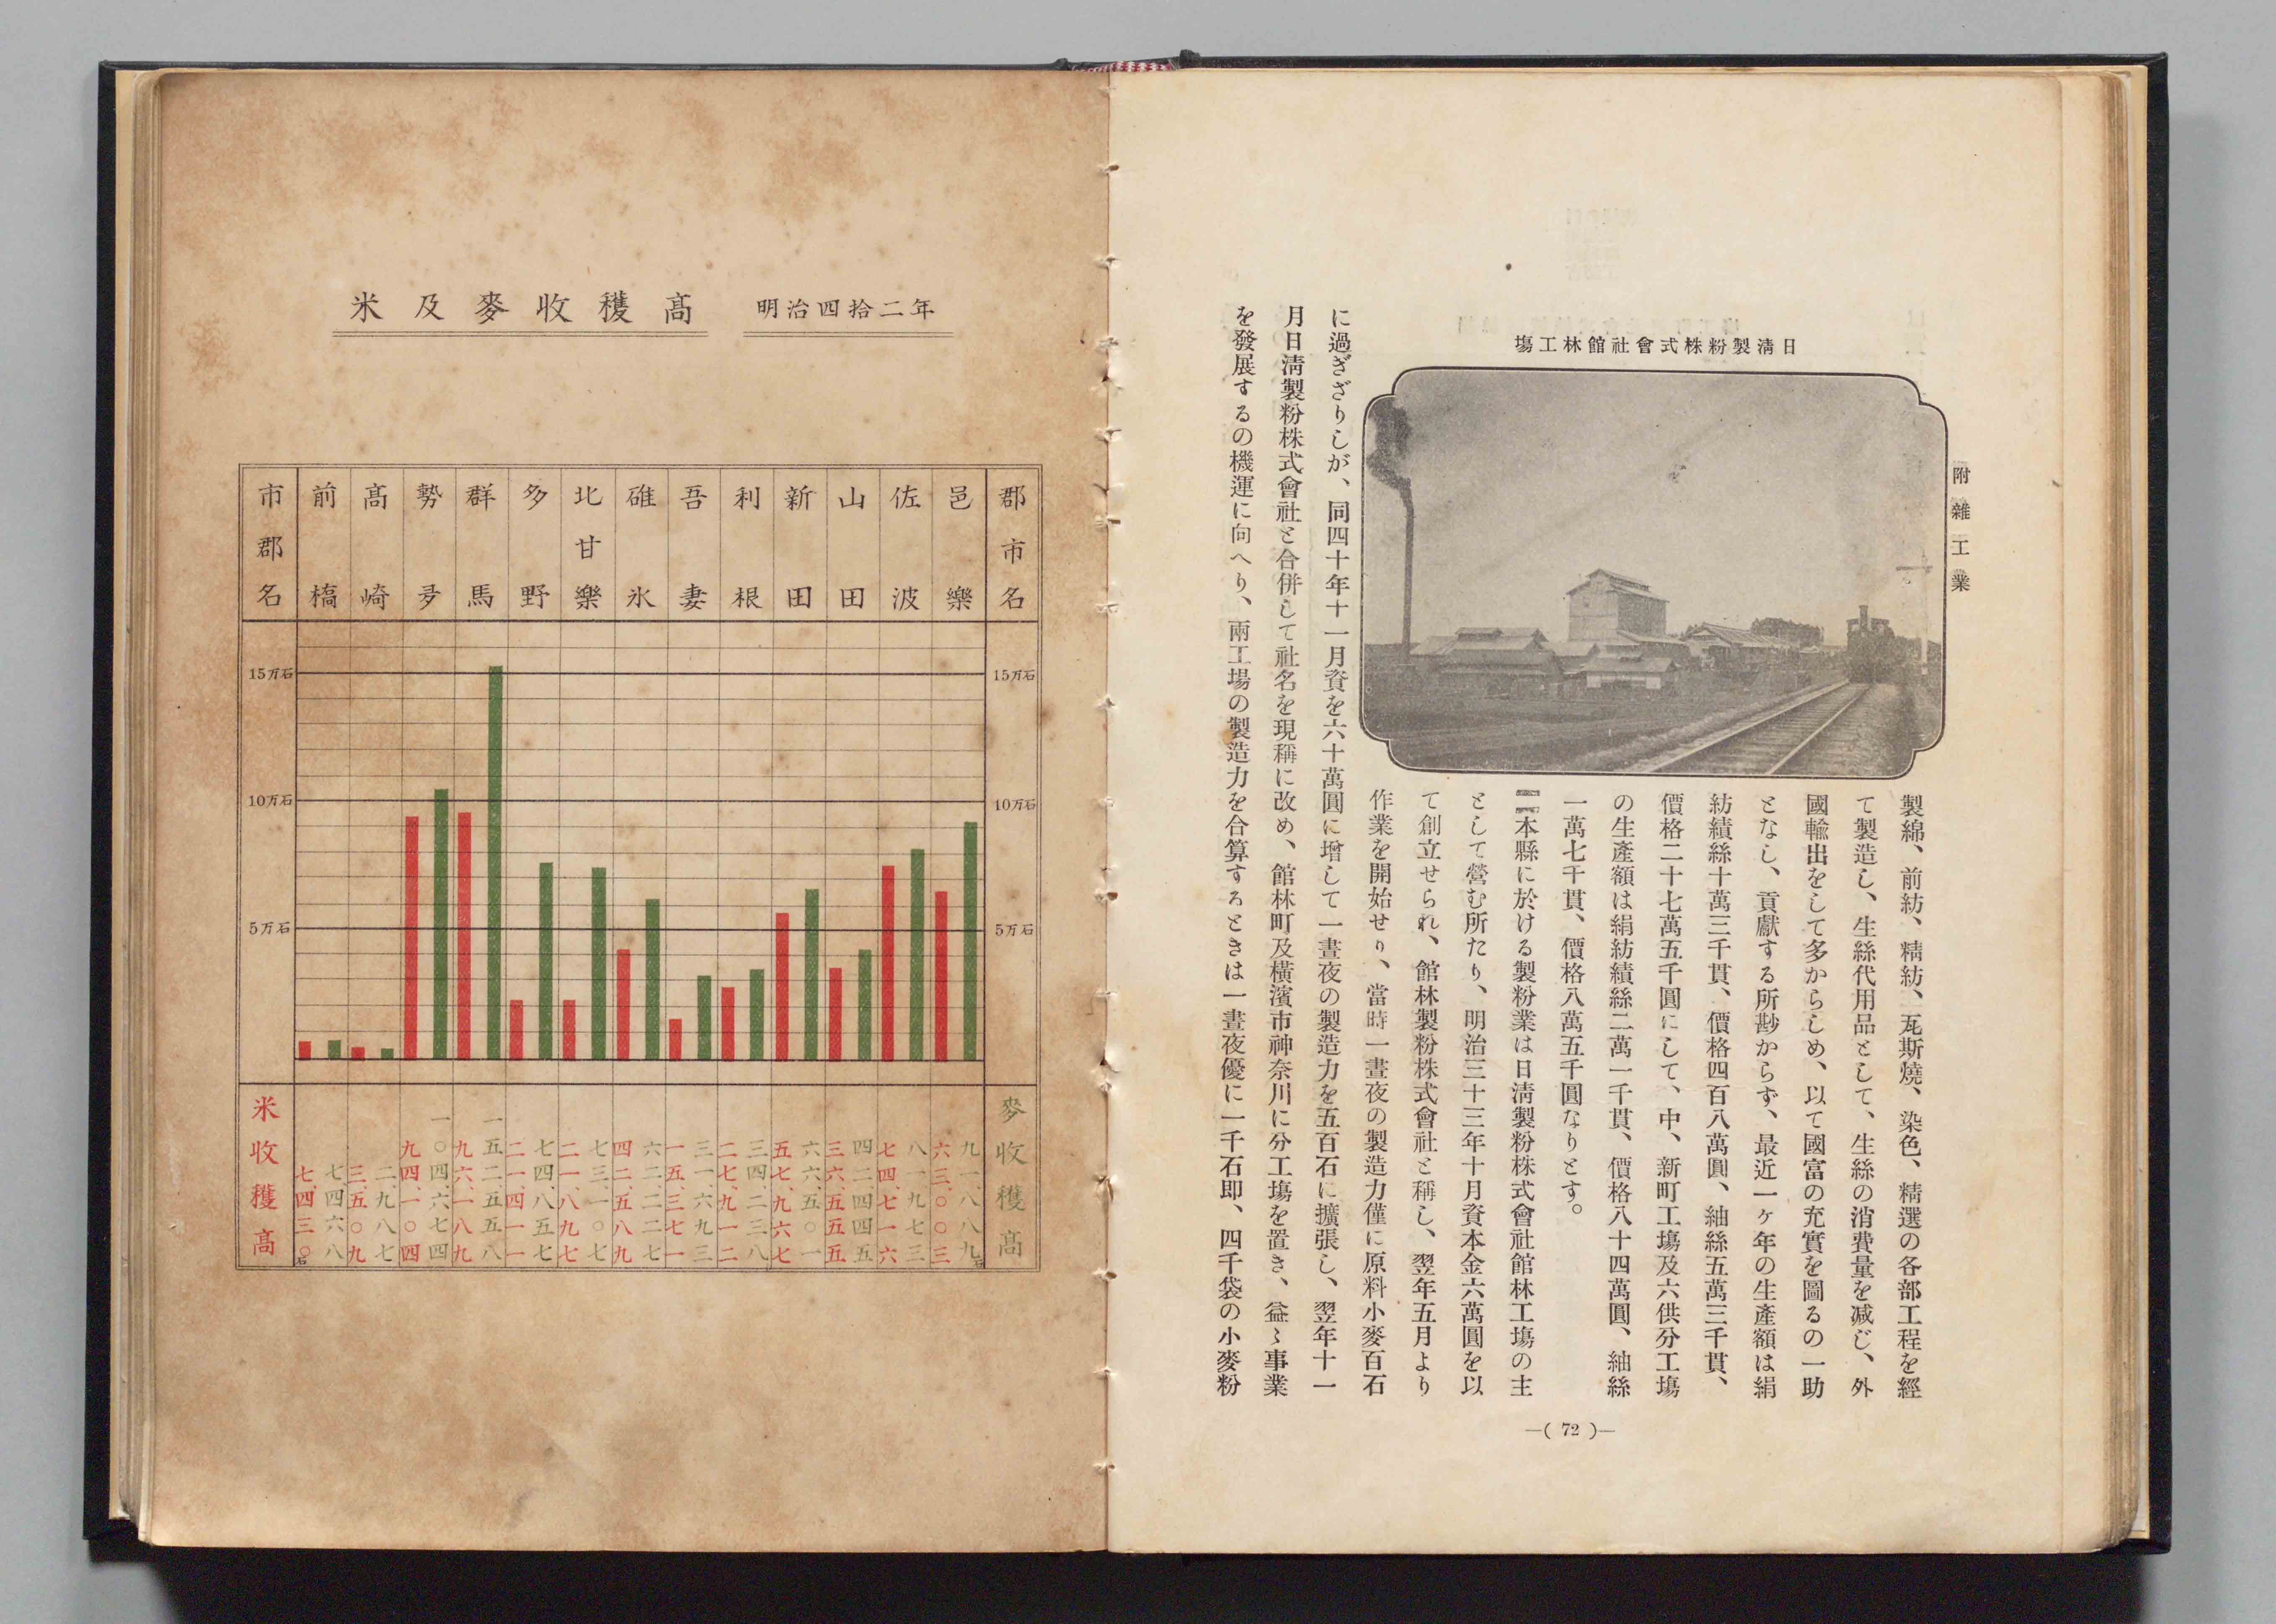 附雜工業
日淸製粉株式會社館林工塲
製綿、前紡、精紡、瓦斯燒、染色、精選の各部工程を經
て製造し、生絲代用品として、生絲の消費量を減じ、外
國輸出をして多からしめ、以て國富の充實を圖るの一助
となし、貢獻する所尠からず、最近一ヶ年の生產額は絹
紡績絲十萬三千貫、價格四百八萬圓、紬絲五萬三千貫、
價格二十七萬五千圓にして、中、新町工塲及六供分工塲
の生產額は絹紡績絲二萬一千貫、價格八十四萬圓、紬絲
一萬七千貫、價格八萬五千圓なりとす。
本縣に於ける製粉業は日淸製粉株式會社館林工塲の主
として營む所たり、明治三十三年十月資本金六萬圓を以
て創立せられ、館林製粉株式會社と稱し、翌年五月より
作業を開始せり、當時一晝夜の製造力僅に原料小麥百石
に過ぎざりしが、同四十年十一月資を六十萬圓に增して一晝夜の製造力を五百石に擴張し、翌年十一
月日淸製粉株式會社と合併して社名を現稱に改め、館林町及橫濱市神奈川に分工塲を置き、益〻事業
を發展するの機運に向へり、兩工塲の製造力を合算するときは一晝夜優に一千石即、四千袋の小麥粉
—( 72 )—
米及麥收穫高 明治四拾二年
市郡名
前橋
高崎
勢多
群馬
多野
北甘樂
碓氷
吾妻
利根
新田
山田
佐波
邑樂
郡市名
15万石
10万石
5万石
15万石
10万石
5万石
米收穫高
七、四三〇石
七四六八
三、五〇九
二九八七
九四、一〇四
一〇四、六七四
九六、一八九
一五二、五五八
二一、四一一
七四、八五七
二一、八九七
七三、一〇七
四二、五八九
六二、二二七
一五、三七一
三一、六九三
二七、九一二
三四、二三八
五七、九六七
六六、五〇一
三六、五五五
四二、四四五
七四、七一六
八一、九七三
六三、〇〇三
九一、八八九石
麥收穫高